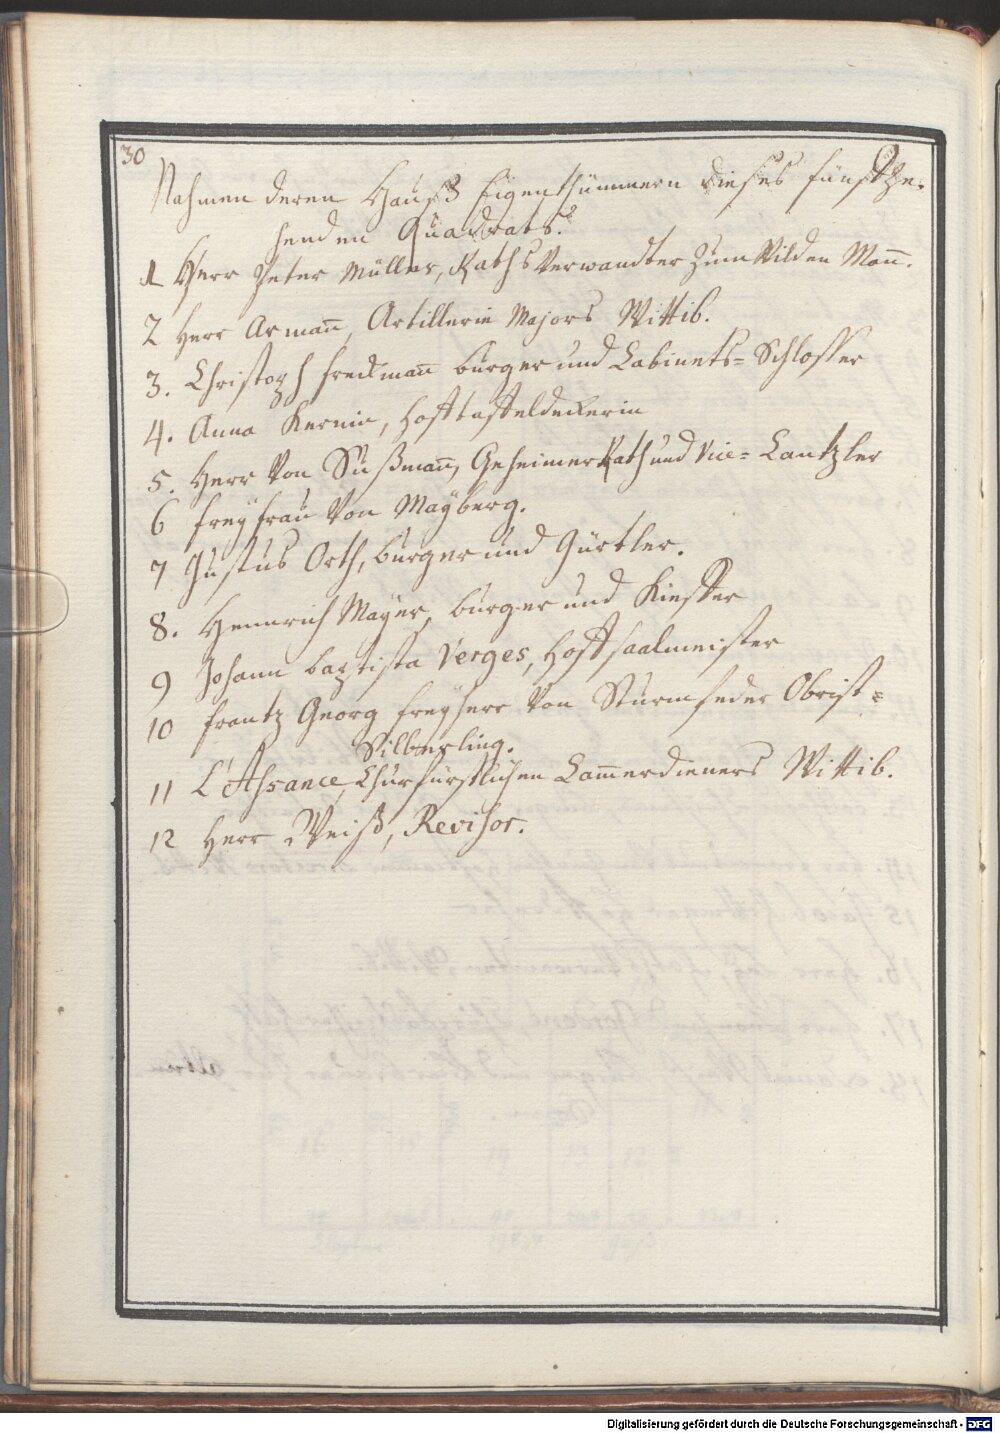 30
Nahmen deren Hauß Eigenthümmern dieses fünffze-
henden Quadrats.
1 Herr Peter Müller, Raths Verwandter zum Wilden Mañ.
2 Herr Armañ, Artillerie Majors Wittib.
3. Christoph freckmañ burger und Cabinets= Schlosser
4. Anna Kernin, Hofftaffeldeckerin
5. Herr Von Sußmañ, Geheimer Rath und Vice= Cantzler
6 freyfrau Von Mayberg.
7 Justus Orth, burger und Gürtler.
8. Hennrich Mayer, burger und Kieffer
9 Johann baptista Verges, Hoffsaalmeister
10 frantz Georg freyherr Von Sturmfeder Obrist=
Silberling.
11 L'Asrance, Churfürstlichen Cam̄erdieners Wittib.
12 Herr Weiß, Revisor.
Digitalisierung gefördert durch die Deutsche Forschungsgemeinschaft - DFG